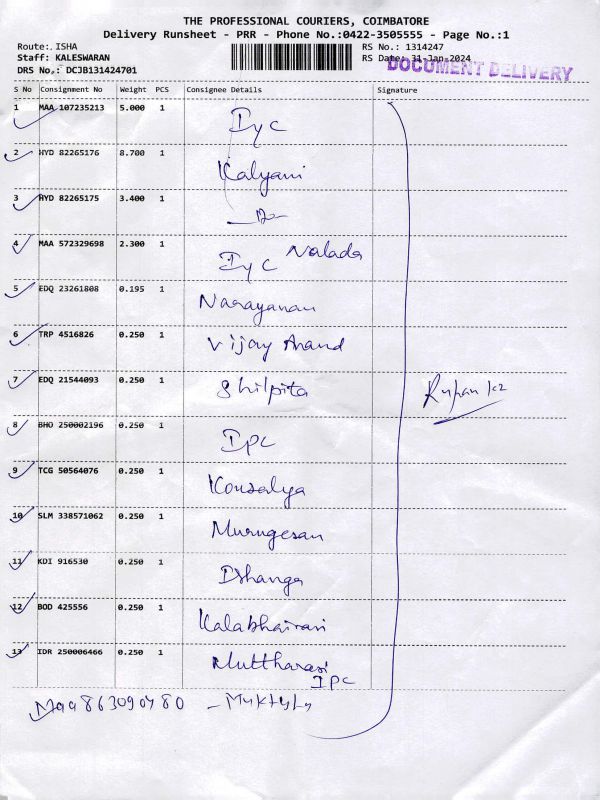 THE PROFESSIONAL COURIERS, COIMBATORE
Delivery Runsheet - PRR - Phone No.:0422-3505555 - Page No.:1
Route: ISHA RS No.: 1314247
Staff: KALESWARAN RS Date: 31-Jan-2024
DRS No.: DCJB131424701 DOCUMENT DELIVERY
S No Consignment No Weight PCS Consignee Details Signature
1 MAA 107235213 5.000 1 Iyc
2 HYD 82265176 8.700 1 Kalyani
3 HYD 82265175 3.400 1
4 MAA 572329698 2.300 1 Iyc Nalada
5 EDQ 23261808 0.195 1 Narayanan
6 TRP 4516826 0.250 1 Vijay Anand
7 EDQ 21544093 0.250 1 Shilpita
8 BHO 250002196 0.250 1 IPC
9 TCG 50564076 0.250 1 Kousalya
10 SLM 338571062 0.250 1 Murugesan
11 KDI 916530 0.250 1
12 BOD 425556 0.250 1 Kalabhairavi
13 IDR 250006466 0.250 1 Muttharasi
IPC
Maa 863090780